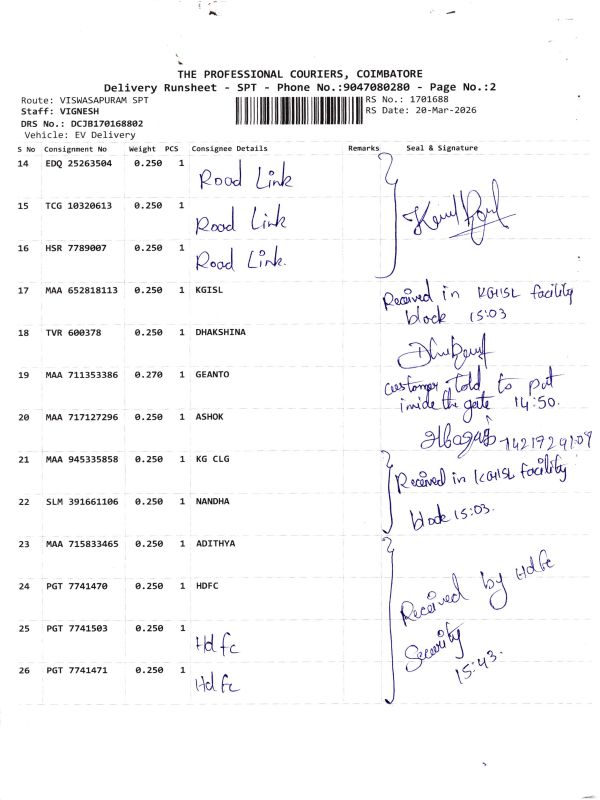 THE PROFESSIONAL COURIERS, COIMBATORE
Delivery Runsheet - SPT - Phone No.:9047080280 - Page No.:2
Route: VISWASAPURAM SPT
Staff: VIGNESH
DRS No.: DCJB170168802
Vehicle: EV Delivery
RS No.: 1701688
RS Date: 20-Mar-2026
S No Consignment No Weight PCS Consignee Details Remarks Seal & Signature
14 EDQ 25263504 0.250 1 Road Link
15 TCG 10320613 0.250 1 Road Link
16 HSR 7789007 0.250 1 Road Link.
17 MAA 652818113 0.250 1 KGISL Received in KGISL facility
block 15:03
18 TVR 600378 0.250 1 DHAKSHINA
19 MAA 711353386 0.270 1 GEANTO customer told to put
inside the gate 14:50.
20 MAA 717127296 0.250 1 ASHOK
21 MAA 945335858 0.250 1 KG CLG Received in KGISL facility
22 SLM 391661106 0.250 1 NANDHA block 15:03.
23 MAA 715833465 0.250 1 ADITHYA
24 PGT 7741470 0.250 1 HDFC Received by Hdfc
25 PGT 7741503 0.250 1 Hdfc Security
26 PGT 7741471 0.250 1 Hdfc 15:43.